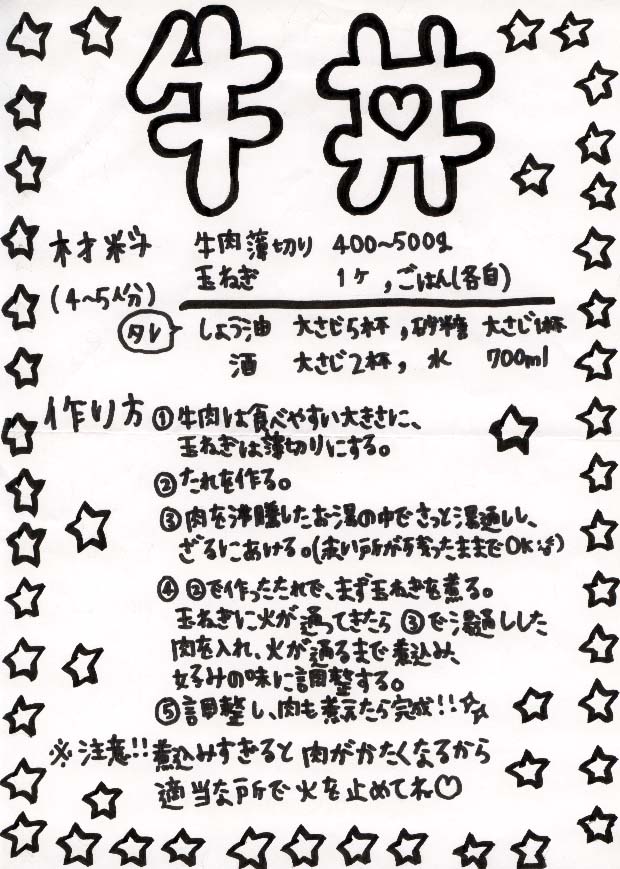 牛丼
材料 牛肉薄切り 400〜500g
玉ねぎ 1ケ,ごはん(各自)
(4〜5人分)
タレ しょう油 大さじ5杯,砂糖 大さじ1杯
酒 大さじ2杯, 水 700ml
作り方 ①牛肉は食べやすい大きさに、
玉ねぎは薄切りにする。
②たれを作る。
③肉を沸騰したお湯の中でさっと湯通しし、
ざるにあける。(赤い所が残ったままでOK)
④②で作ったたれで、まず玉ねぎを煮る。
玉ねぎに火が通ってきたら③で湯通しした
肉を入れ、火が通るまで煮込み、
好みの味に調整する。
⑤調整し、肉も煮えたら完成!!☆☆
※注意!!煮込みすぎると肉がかたくなるから
適当な所で火を止めてね♡